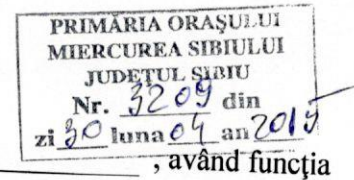 PRIMĂRIA ORAŞULUI
MIERCUREA SIBIULUI
JUDEŢUL SIBIU
Nr. 3209 din
zi 30 luna 04 an 2019
, având funcţia